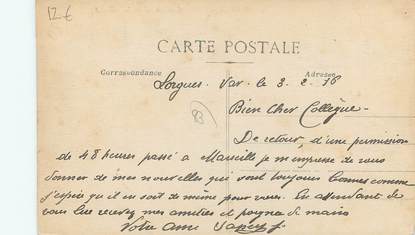 12 €
CARTE POSTALE
Correspondance
Adresse
Lorgues. Var. le 3. 2. 16
83
Bien Cher Collègue -
De retour, d'une permission
de 48 heures passé à Marseille je m'empresse de vous
donner de mes nouvelles qui sont toujours bonnes comme
j'espère qu'il en soit de même pour vous. En attendant de
vous lire recevez mes amitiés et poignée de mains
Votre ami